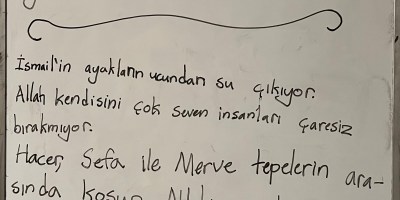 İsmail'in ayakların ucundan su çıkıyor.
Allah kendisini çok seven insanları çaresiz
bırakmıyor.
Hacer, Sefa ile Merve tepelerin ara-
sında